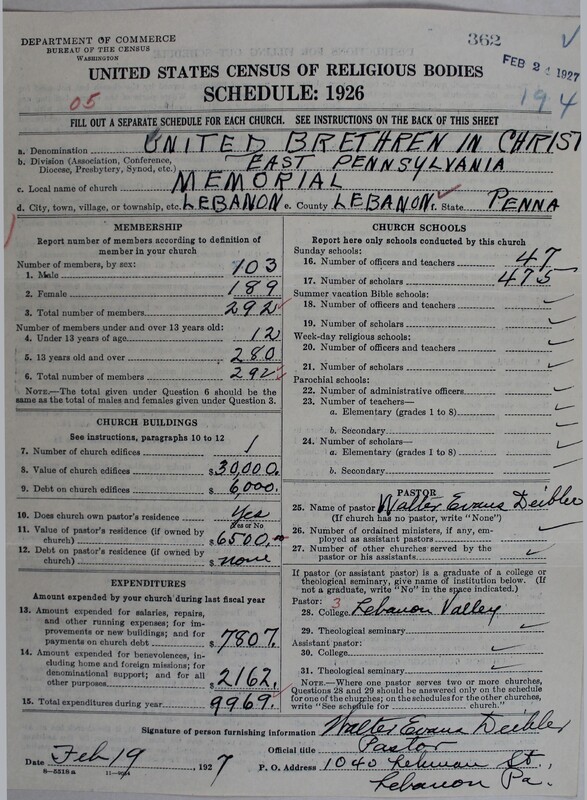 DEPARTMENT OF COMMERCE
BUREAU OF THE CENSUS
WASHINGTON
362
FEB 2 1927
194
UNITED STATES CENSUS OF RELIGIOUS BODIES
SCHEDULE: 1926
05
FILL OUT A SEPARATE SCHEDULE FOR EACH CHURCH. SEE INSTRUCTIONS ON THE BACK OF THIS SHEET
a. Denomination UNITED BRETHREN IN CHRIST
b. Division (Association, Conference, Diocese, Presbytery, Synod, etc.) EAST PENNSYLVANIA
c. Local name of church MEMORIAL
d. City, town, village, or township, etc. LEBANON e. County LEBANON f. State PENNA
MEMBERSHIP
Report number of members according to definition of
member in your church
Number of members, by sex:
1. Male 103
2. Female 189
3. Total number of members 292
Number of members under and over 13 years old:
4. Under 13 years of age 12
5. 13 years old and over 280
6. Total number of members 292
NOTE.—The total given under Question 6 should be
the same as the total of males and females given under Question 3.
CHURCH BUILDINGS
See instructions, paragraphs 10 to 12
7. Number of church edifices 1
8. Value of church edifices $30,000.
9. Debt on church edifices $6,000.
10. Does church own pastor's residence? Yes
Yes or No
11. Value of pastor's residence (if owned by
church) $6500.
12. Debt on pastor's residence (if owned by
church) $none
EXPENDITURES
Amount expended by your church during last fiscal year
13. Amount expended for salaries, repairs,
and other running expenses; for im-
provements or new buildings; and for
payments on church debt $7807.
14. Amount expended for benevolences, in-
cluding home and foreign missions; for
denominational support; and for all
other purposes $2162.
15. Total expenditures during year 9969.
CHURCH SCHOOLS
Report here only schools conducted by this church
Sunday schools:
16. Number of officers and teachers 47
17. Number of scholars 475
Summer vacation Bible schools:
18. Number of officers and teachers
19. Number of scholars
Week-day religious schools:
20. Number of officers and teachers
21. Number of scholars
Parochial schools:
22. Number of administrative officers
23. Number of teachers—
a. Elementary (grades 1 to 8)
b. Secondary
24. Number of scholars—
a. Elementary (grades 1 to 8)
b. Secondary
PASTOR
25. Name of pastor Walter Evans Deibler
(If church has no pastor, write "None")
26. Number of ordained ministers, if any, em-
ployed as assistant pastors
27. Number of other churches served by the
pastor or his assistants
If pastor (or assistant pastor) is a graduate of a college or
theological seminary, give name of institution below. (If
not a graduate, write "No" in the space indicated.)
Pastor: 3
28. College Lebanon Valley
29. Theological seminary
Assistant pastor:
30. College
31. Theological seminary
NOTE.—Where one pastor serves two or more churches,
Questions 28 and 29 should be answered only on the schedule
for one of the churches; on the schedules for the other churches,
write "See schedule for church."
Signature of person furnishing information Walter Evans Deibler
Official title Pastor
Date Feb 19, 1927 P. O. Address 1040 Lehman St.,
Lebanon Pa.
8—5518 a